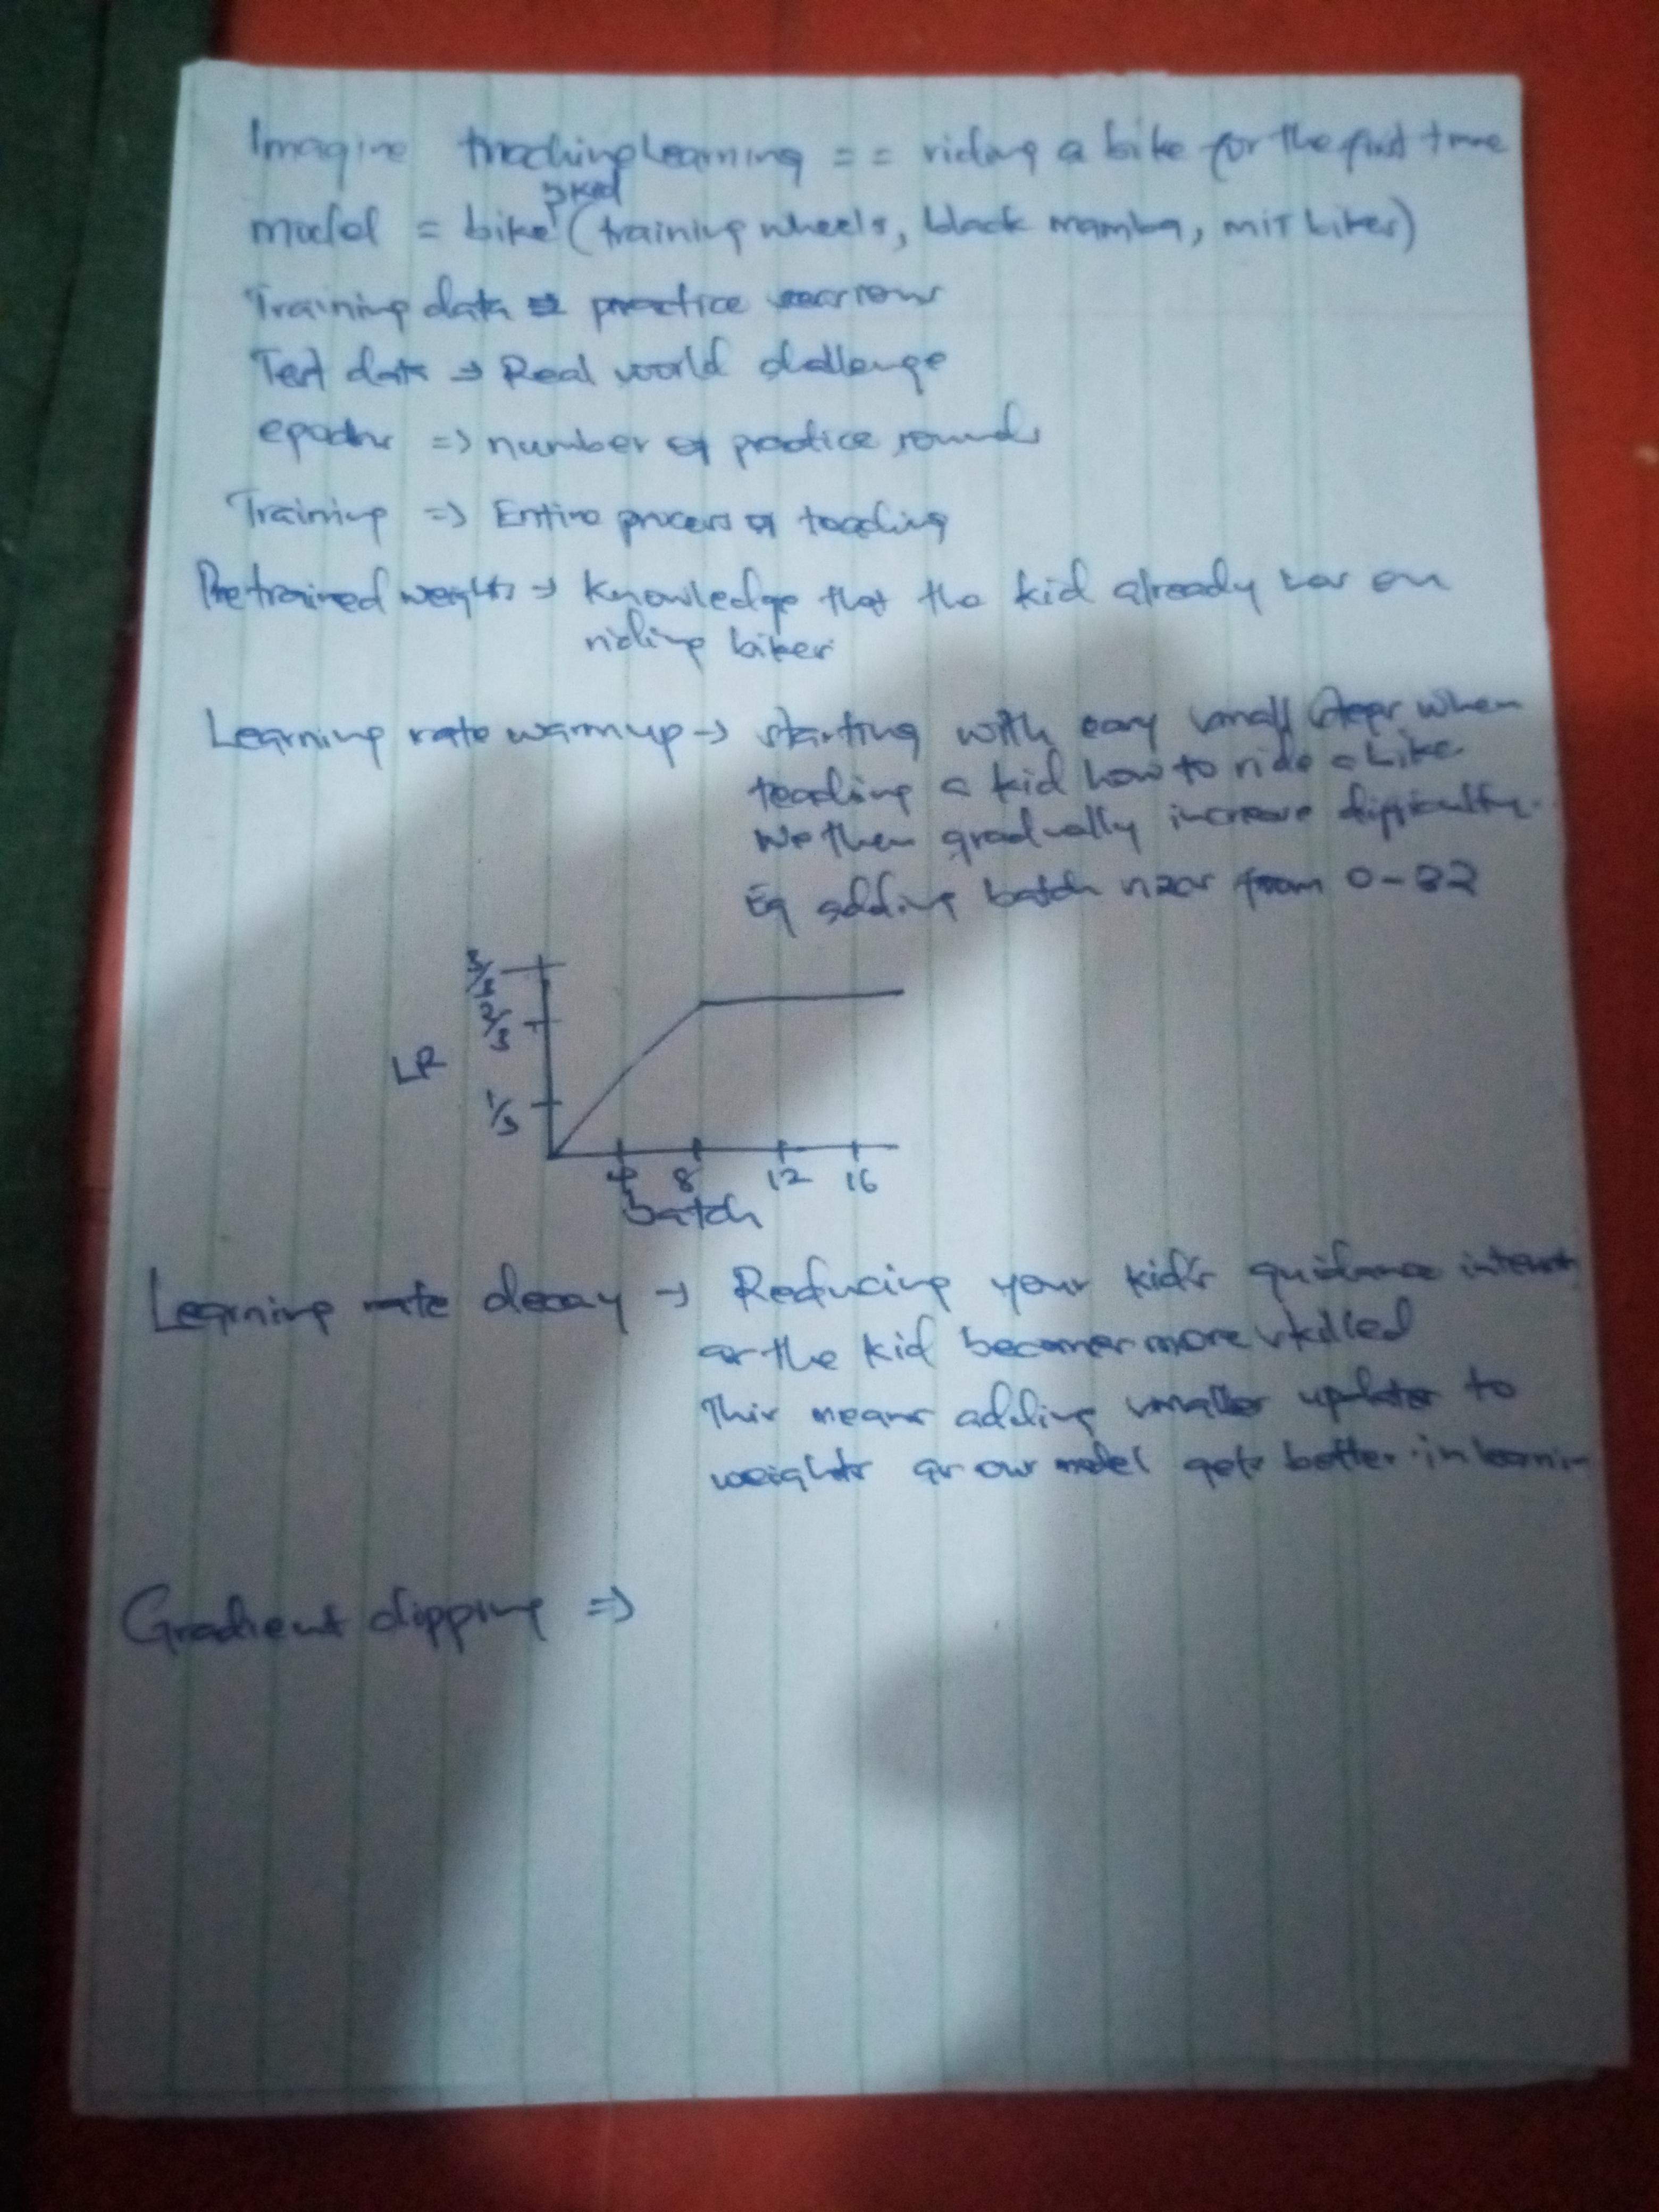 Imagine machine Learning == riding a bike for the first time
kid
model = bike (training wheels, black mamba, MIT bikes)
Training data => practice sessions
Test data => Real world challenge
epochs => number of practice rounds
Training => Entire process of teaching
Pretrained weights -> Knowledge that the kid already has on
riding bikes
Learning rate warmup -> starting with easy small steps when
teaching a kid how to ride a bike
We then gradually increase difficulty.
Eg adding batch sizes from 0-32
3/3
2/3
LR
1/3
4 8 12 16
batch
Learning rate decay -> Reducing your kid's guidance
as the kid becomes more skilled
This means adding smaller updates to
weights as our model gets better in
Gradient clipping =>